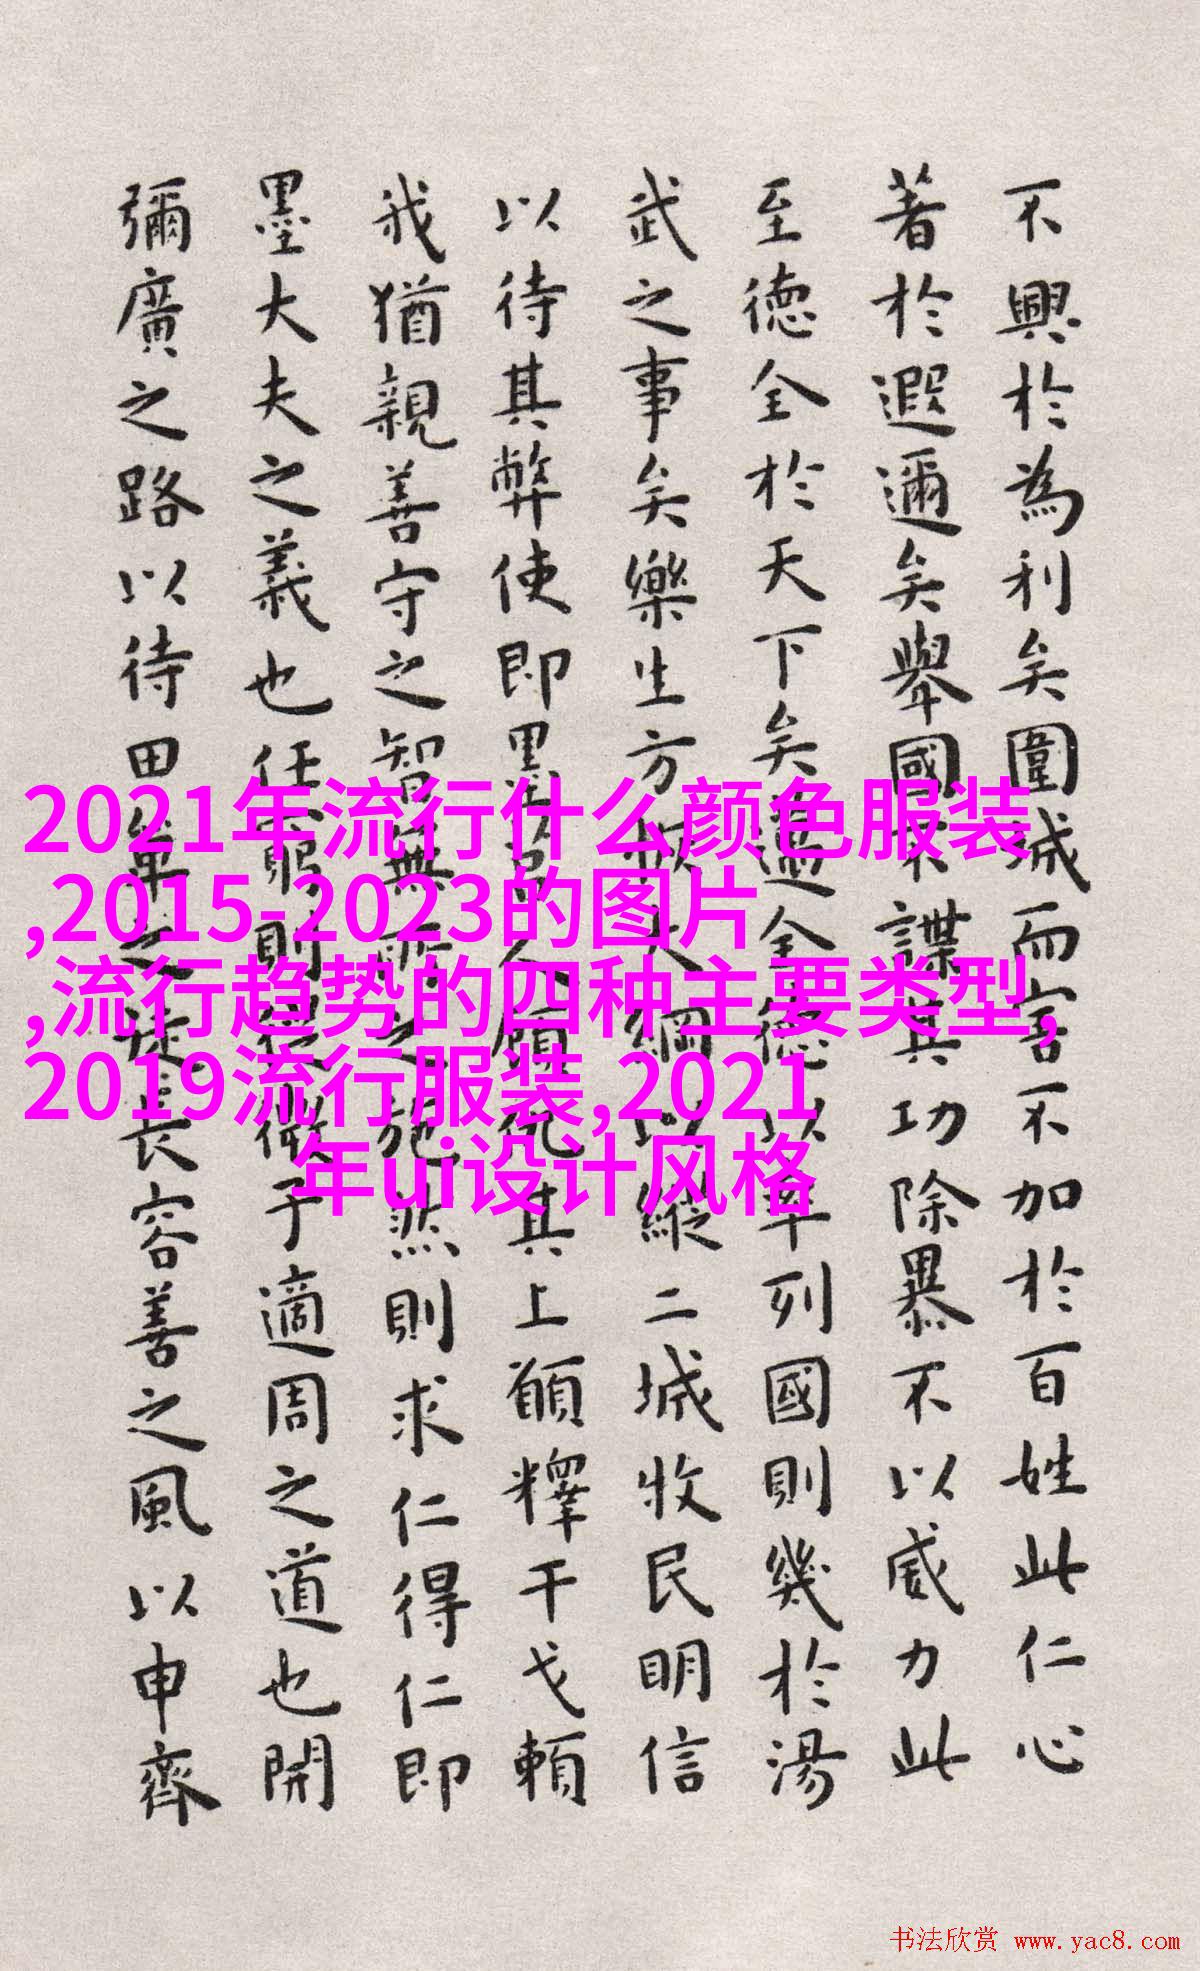 不興於為利矣圍城而害不加於百姓此仁心
著於遐邇矣舉國不謀其功除暴不以威力此
至德全於天下矣邁全德以率列國則幾於湯
武之事矣樂生方恢大綱以縱二城收民明信
以待其弊使即墨莒人顧仇其上願釋干戈賴
我猶親善守之智無所之施然則求仁得仁即
墨大夫之義也任窮則從微子適周之道也開
彌廣之路以待田單之徒長容善之風以申齊
2021年流行什么颜色服装
,2015-2023的图片
,流行趋势的四种主要类型,
2019流行服装,2021
年ui设计风格
书法欣赏 www.yac8.com